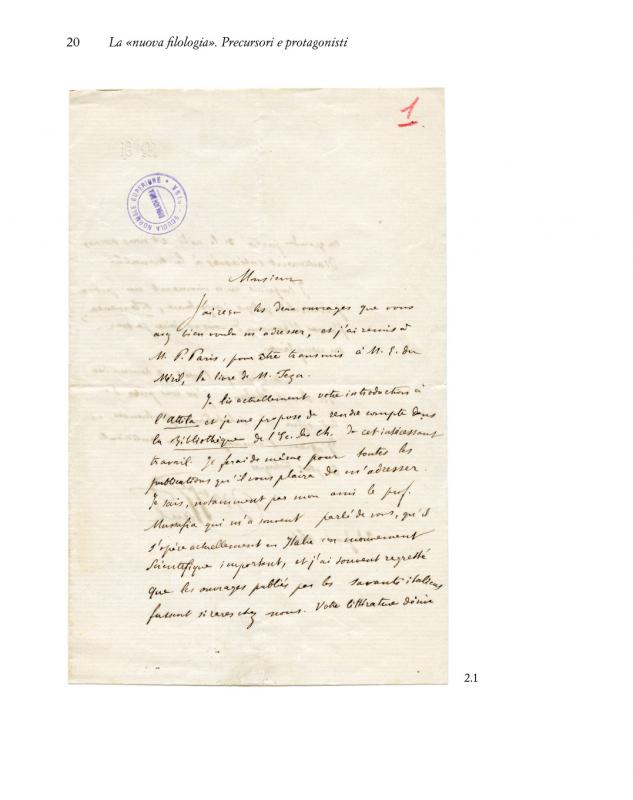 20 La «nuova filologia». Precursori e protagonisti
1
SCUOLA NORMALE SUPERIORE • PISA •
BIBLIOTECA
Monsieur
J'ai reçu les deux ouvrages que vous
avez bien voulu m'adresser, et j'ai remis à
M. P. Paris, pour être transmis à M. E. du
Méril, le livre de M. Teza.
Je lis actuellement votre introduction à
l'Attila et je me propose de rendre compte dans
la Bibliothèque de l'Ec. des Ch. de cet intéressant
travail. Je ferai de même pour toutes les
publications qu'il vous plaira de m'adresser.
Je sais, notamment par mon ami le prof.
Mussafia qui m'a souvent parlé de vous, qu'il
s'opère actuellement en Italie un mouvement
scientifique important, et j'ai souvent regretté
que les ouvrages publiés par les savants italiens
fussent si rares chez nous. Votre littérature
2.1